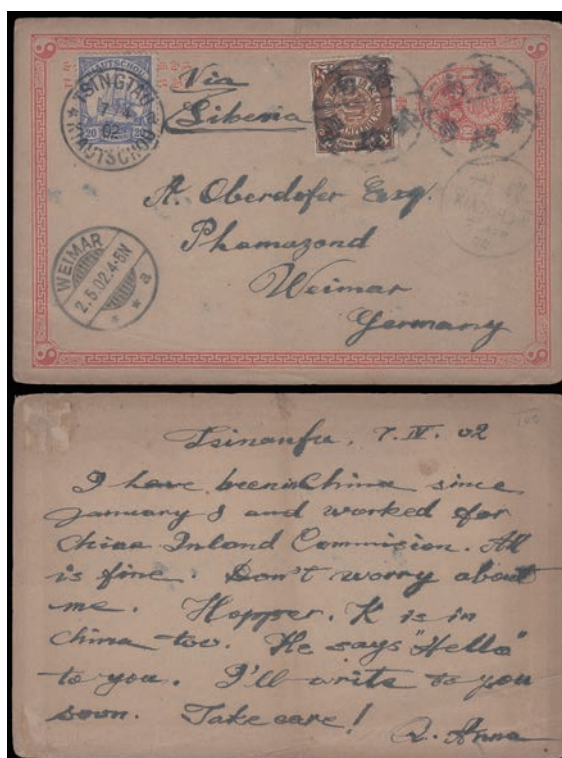 KIAUTSCHOU
20 20
TSINGTAU
7 4
02
KIAUTSCHOU
a
Via
Siberia
A. Oberdofer Esq.
Phamazond
Weimar
Germany
WEIMAR
2.5.02.4-5N
a
Tsinanfu, 7.IV.02
I have been in China since
January 8 and worked for
China Inland Commision. All
is fine. Don't worry about
me. Hopper. K is in
China too. He says "Hello"
to you. I'll write to you
soon. Take care!
R. Anna